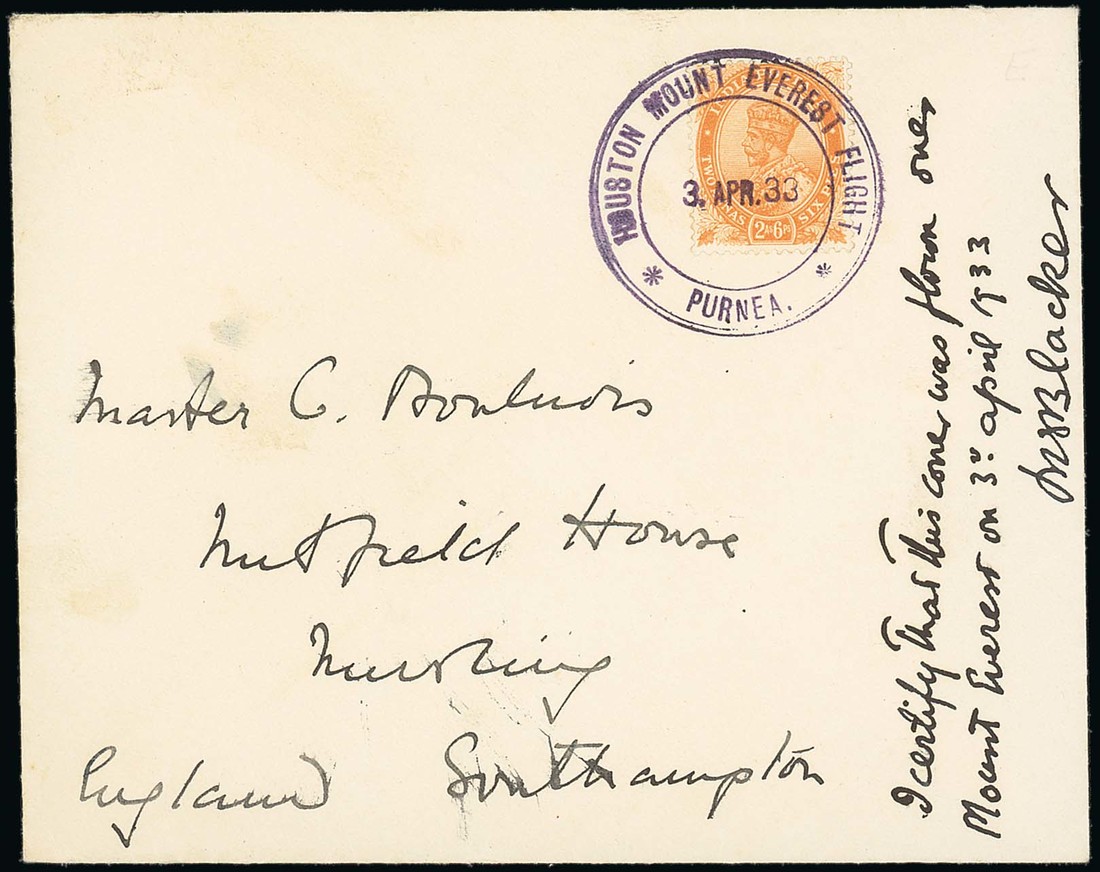 HOUSTON MOUNT EVEREST FLIGHT
3. APR. 33
* PURNEA. *
INDIA
TWO ANNAS SIX
2As6Ps
Master C. Boulnois
Nutfield House
Nursling
England Southampton
I certify that this cover was flown over
Mount Everest on 3rd april 1933
Blacker